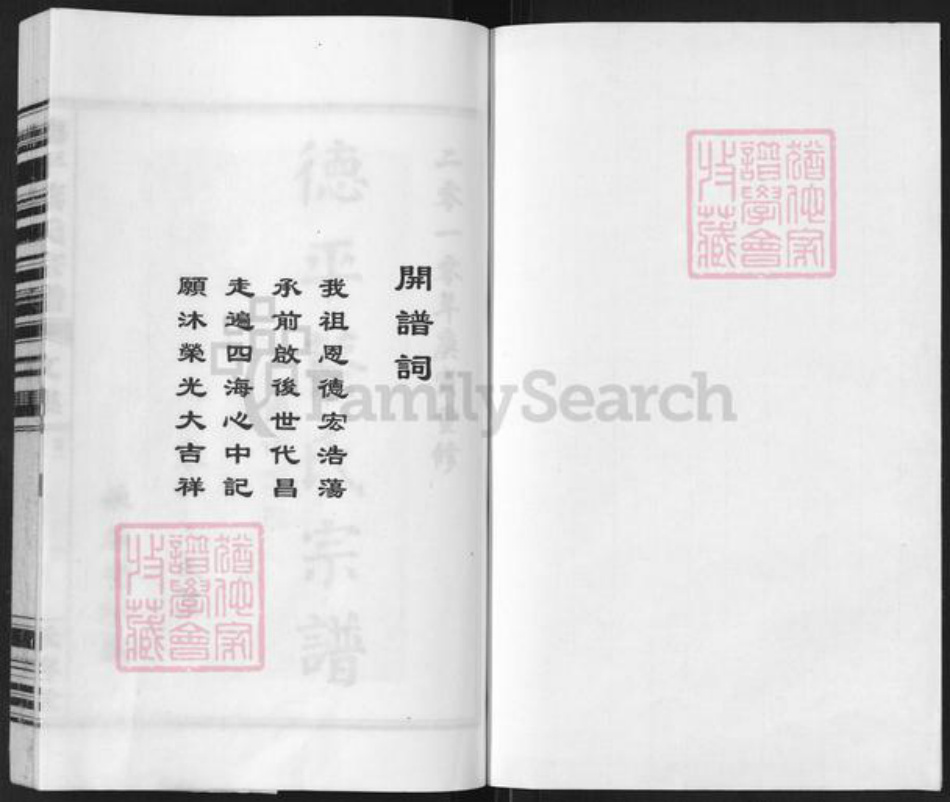 猶他家
譜學會
收藏
開譜詞
我祖恩德宏浩蕩
承前啟後世代昌
走遍四海心中記
願沐榮光大吉祥
猶他家
譜學會
收藏
FamilySearch